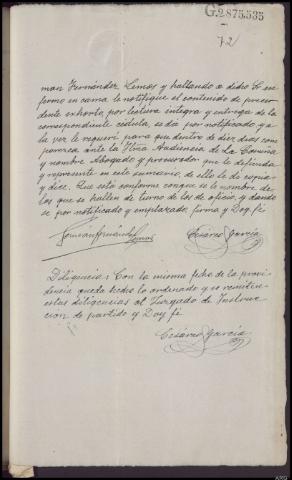 G.2.875,535
72
man Fernández Lemos y hallando a dicho Sr en-
fermo en cama le notifiqué el contenido de prece-
dente exhorto por lectura integra y entrega de la
correspondiente cédula, se dá por notificado y a
la vez le requerí para que dentro de diez dias com-
parezca ante la Iltma Audiencia de La Coruña
y nombre Abogado y procurador que le defienda
y represente en este sumario, de ello le doy copia
y dice: Que está conforme con que se le nombre, de
los que se hallen de turno de los de oficio, y dando-
se por notificado y emplazado firma y Doy fé
Germán Fernández Lemos
Cesáreo García
Diligencia: Con la misma fecha de la provi-
dencia queda hecho lo ordenado y se remiten
estas diligencias al Juzgado de Instruc-
cion de partido y Doy fé
Cesáreo García